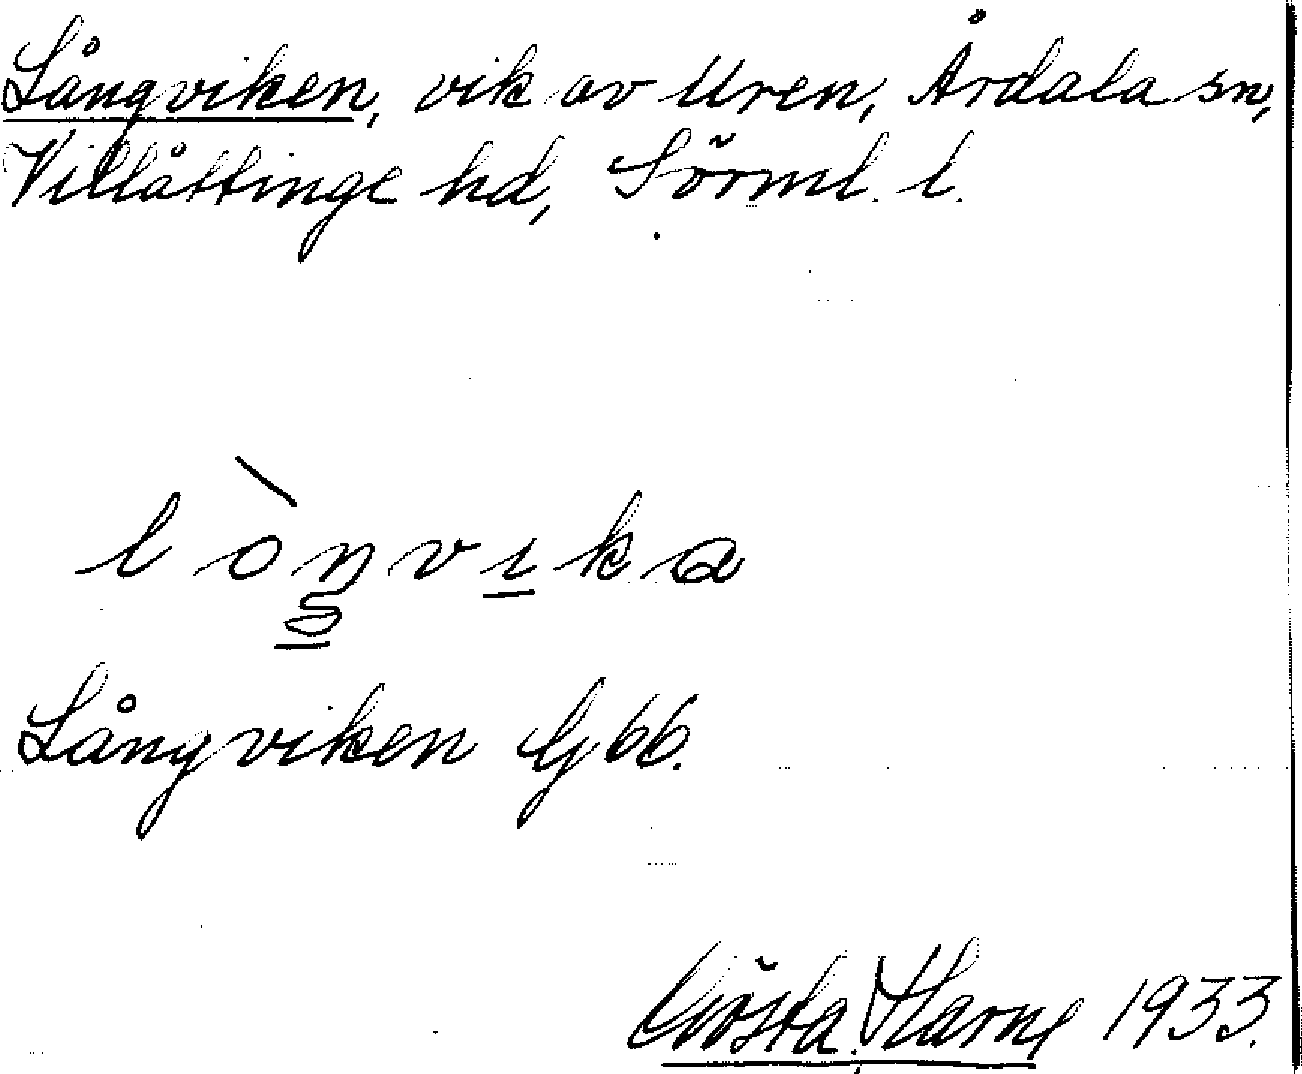 Långviken, vik av Uren, Årdala sn,
Villåttinge hd, Sörml. l.
lòŋvika
Långviken G 66.
Gösta 1933.